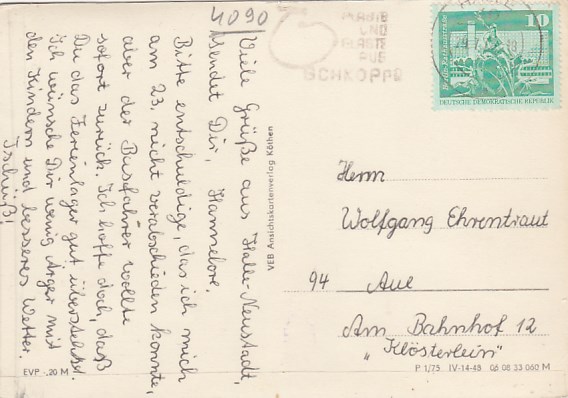 4090
Viele Grüße aus Halle-Neustadt,
sendet Dir, Hannelore.
Bitte entschuldige, das ich mich
am 23. nicht verabschieden konnte,
aber der Busfahrer wollte
sofort zurück. Ich hoffe doch, daß
Du das Ferienlager gut überstehst.
Ich wünsche Dir wenig Ärger mit
den Kindern und besseres Wetter.
Tschüß!
EVP -,20 M
VEB Ansichtskartenverlag Köthen
PLASTE
UND
ELASTE
AUS
SCHKOPAU
HALLE
10
DEUTSCHE DEMOKRATISCHE REPUBLIK
Herrn
Wolfgang Ehrentraut
94 Aue
Am Bahnhof 12
„Klösterlein"
P 1/75 IV-14-48 06 08 33 060 M